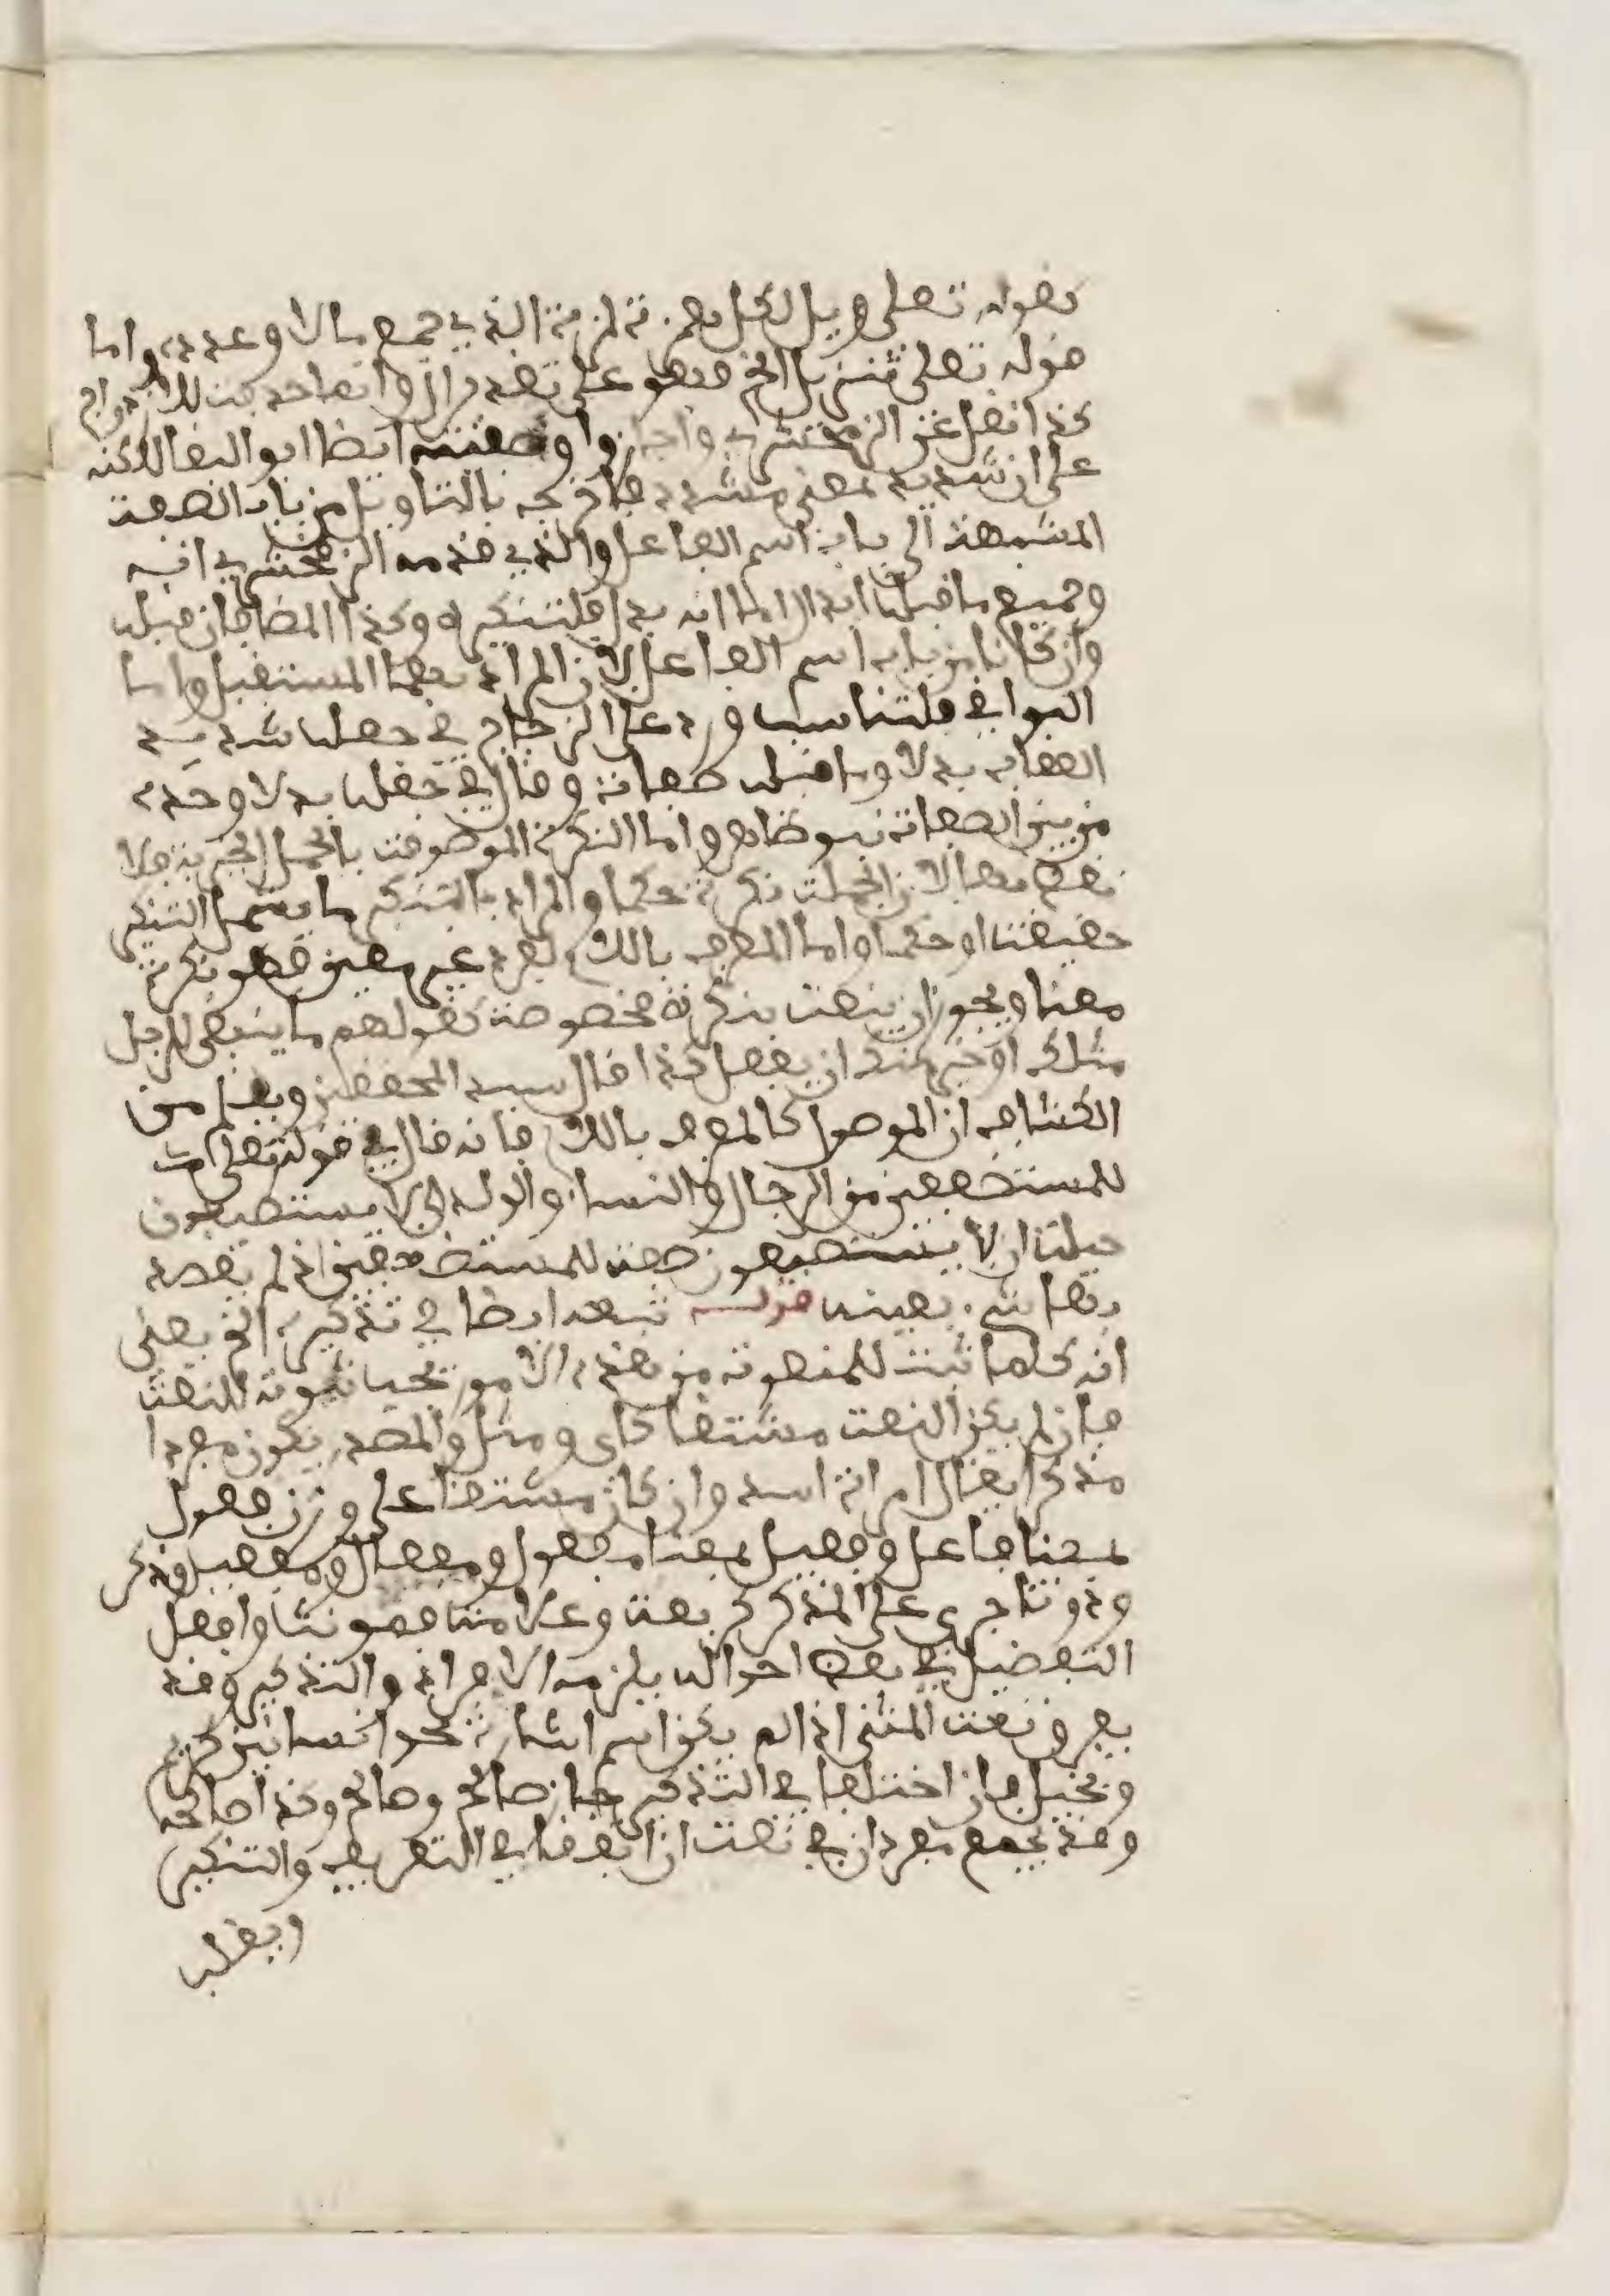 كقوله تعلى ويل لكل همزة لمزة الذي جمع مالا وعدده واما
قوله تعلى تنزيل الخ فهو على تقدير ان
كذا نقل عن الزمخشري واجاز وا وصفته ايضا ابو البقا لاكنه
على ان شديد بمعنى مشدد فاخرجه بالتاويل من باب الصفت
المشبهة الى باب اسم الفاعل والذي قدمه الزمخشري انه
وجميع ما قبله ابدال اما انه بدل فلتنكيره وكذا المضافان قبله
وان كانا من باب اسم الفاعل لان المراد بهما المستقبل واما
البواقي فلتناسب ورد على الزجاج في جعله شديد
العقاب بدلا وما قبله صفات وقال في جعله بدلا وحده
من بين الصفات نبو ظاهر واما النكرة الموصوفت بالجمل الخبرية فلا
نقض بها لان الجملت نكرة حكما والمراد بالتنكير ما يشمل التنكير
حقيقتا او حكما واما المعرف بالك لفرد غير معين فهو نكرة
معنا ويجوز ان ينعت بنكرة مخصوصة كقولهم ما ينبغي للرجل
مثلك او خير منك ان يفعل كذا قال سيد المحققين ويعلم من
الكشاف ان الموصول كالمعرف بالك فانه قال في قوله تعلى
للمستضعفين من الرجال والنساء والولدان لا يستطيعون
حيلتا ان لا يستطيعون صفت للمستضعفين اذ لم يقصد
بها شيء بعينه قوله تبعه ايضا في تذكيره الخ يعني
انه كلما ثبت للمنعوت من هذه الامور يجب ثبوته للنعت
فان لم يكن النعت مشتقا كاي ومثل والمصدر يكون مفردا
مذكرا يقال امراة اسد وان كان مشتقا على وزن فعول
بمعنا فاعل وفعيل بمعنا مفعول ومفعال ومفعيل وذكر
وذو تا جرى على المذكر كربعت وعلامتا فهو نتا وافعل
التفضيل في بعض احواله يلزمه الافراد والتذكير وقد
يفرق نعت المثنى اذا لم يكن اسم اشارة نحو انسانين كريم
وبخيل فان اختلفا في التذكير جاز صالح وصالح وكذا صالحه
وقد يجمع مفردان في نعت ان اتفقا في التعريف والتنكير
ويغلب